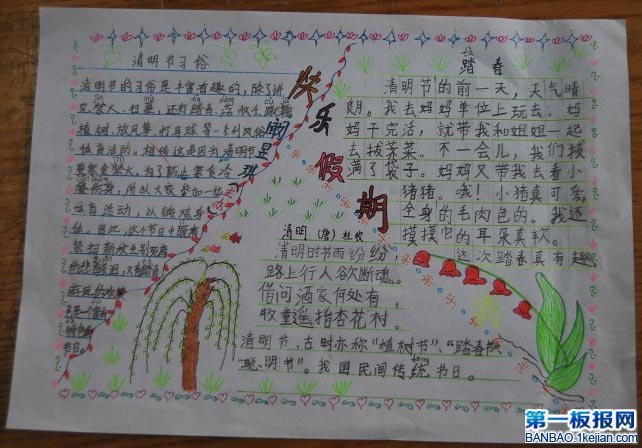 清明节习俗
清明节的习俗是丰富有趣的，除了讲
究禁火、扫墓，还有踏青、荡秋千、蹴鞠
植树、放风筝、打马球等一系列风俗
体育活动。相传这是因为清明节
要寒食禁火，为了防止寒食冷
餐伤身，所以大家参加一些
体育活动，以锻炼身
体。因此，这个节日中既有
祭扫新坟生别死离
的悲酸泪，又有踏青
游玩的欢笑
声，是一个富有
特色的
节日。
快乐的
假期
踏春
清明节的前一天，天气晴
朗。我去妈妈单位上玩去。妈
妈干完活，就带我和姐姐一起
去拔荠菜。不一会儿，我们拔
满了袋子。妈妈又带我去看小
猪猪。哦！小猪真可爱，
全身的毛肉色的。我还
摸摸它的耳朵真软。
这次踏春真有趣
清明（唐）杜牧
清明时节雨纷纷，
路上行人欲断魂。
借问酒家何处有，
牧童遥指杏花村。
清明节，古时亦称“植树节”、“踏春节”
“聪明节”。我国民间传统节日。
tǒng
第一板报网
BANBAO.1kejian.com